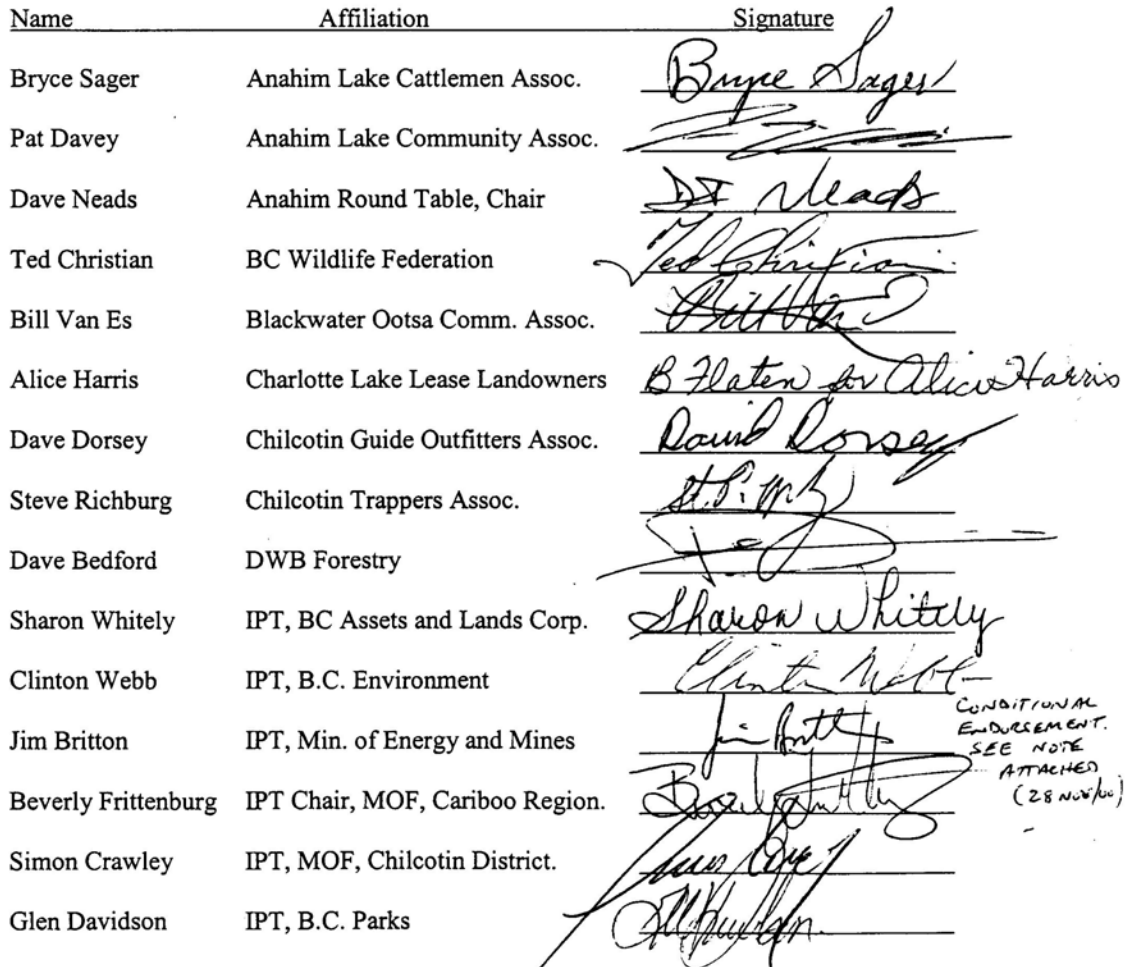 Name Affiliation Signature
Bryce Sager Anahim Lake Cattlemen Assoc. Bryce Sager
Pat Davey Anahim Lake Community Assoc.
Dave Neads Anahim Round Table, Chair DJ Neads
Ted Christian BC Wildlife Federation Ted Christian
Bill Van Es Blackwater Ootsa Comm. Assoc.
Alice Harris Charlotte Lake Lease Landowners B Flaten for Alice Harris
Dave Dorsey Chilcotin Guide Outfitters Assoc. David Dorsey
Steve Richburg Chilcotin Trappers Assoc.
Dave Bedford DWB Forestry
Sharon Whitely IPT, BC Assets and Lands Corp. Sharon Whitely
Clinton Webb IPT, B.C. Environment Clinton Webb
CONDITIONAL
ENDORSEMENT.
SEE NOTE
ATTACHED
(28 NOV/00)
Jim Britton IPT, Min. of Energy and Mines
Beverly Frittenburg IPT Chair, MOF, Cariboo Region.
Simon Crawley IPT, MOF, Chilcotin District.
Glen Davidson IPT, B.C. Parks